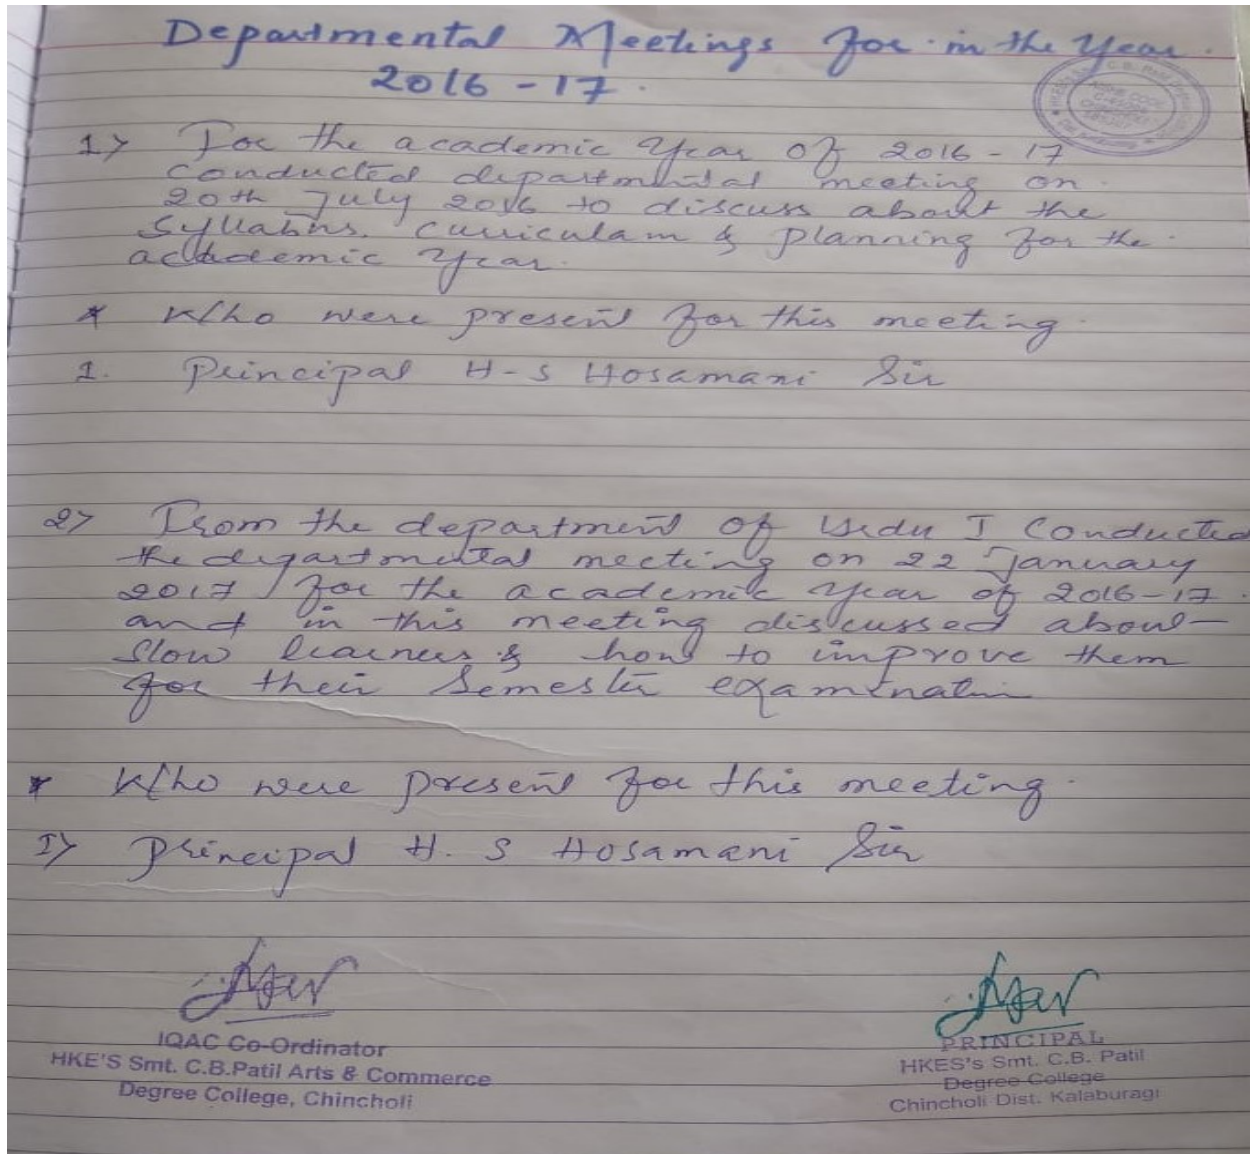 Departmental Meetings for in the Year.
2016 - 17.
1> For the academic year of 2016 - 17
conducted departmental meeting on.
20th July 2016 to discuss about the
Syllabus. curriculam & planning for the.
academic year.
* Who were present for this meeting.
1. Principal H-S Hosamani Sir
2> From the department of Urdu I Conducted
the departmental meeting on 22 January
2017 for the academic year of 2016-17.
and in this meeting discussed about
slow learners & how to improve them
for their Semester examination
* Who were present for this meeting.
1> Principal H. S Hosamani Sir
IQAC Co-Ordinator
HKE'S Smt. C.B.Patil Arts & Commerce
Degree College, Chincholi
PRINCIPAL
HKES's Smt. C.B. Patil
Degree College
Chincholi Dist. Kalaburagi